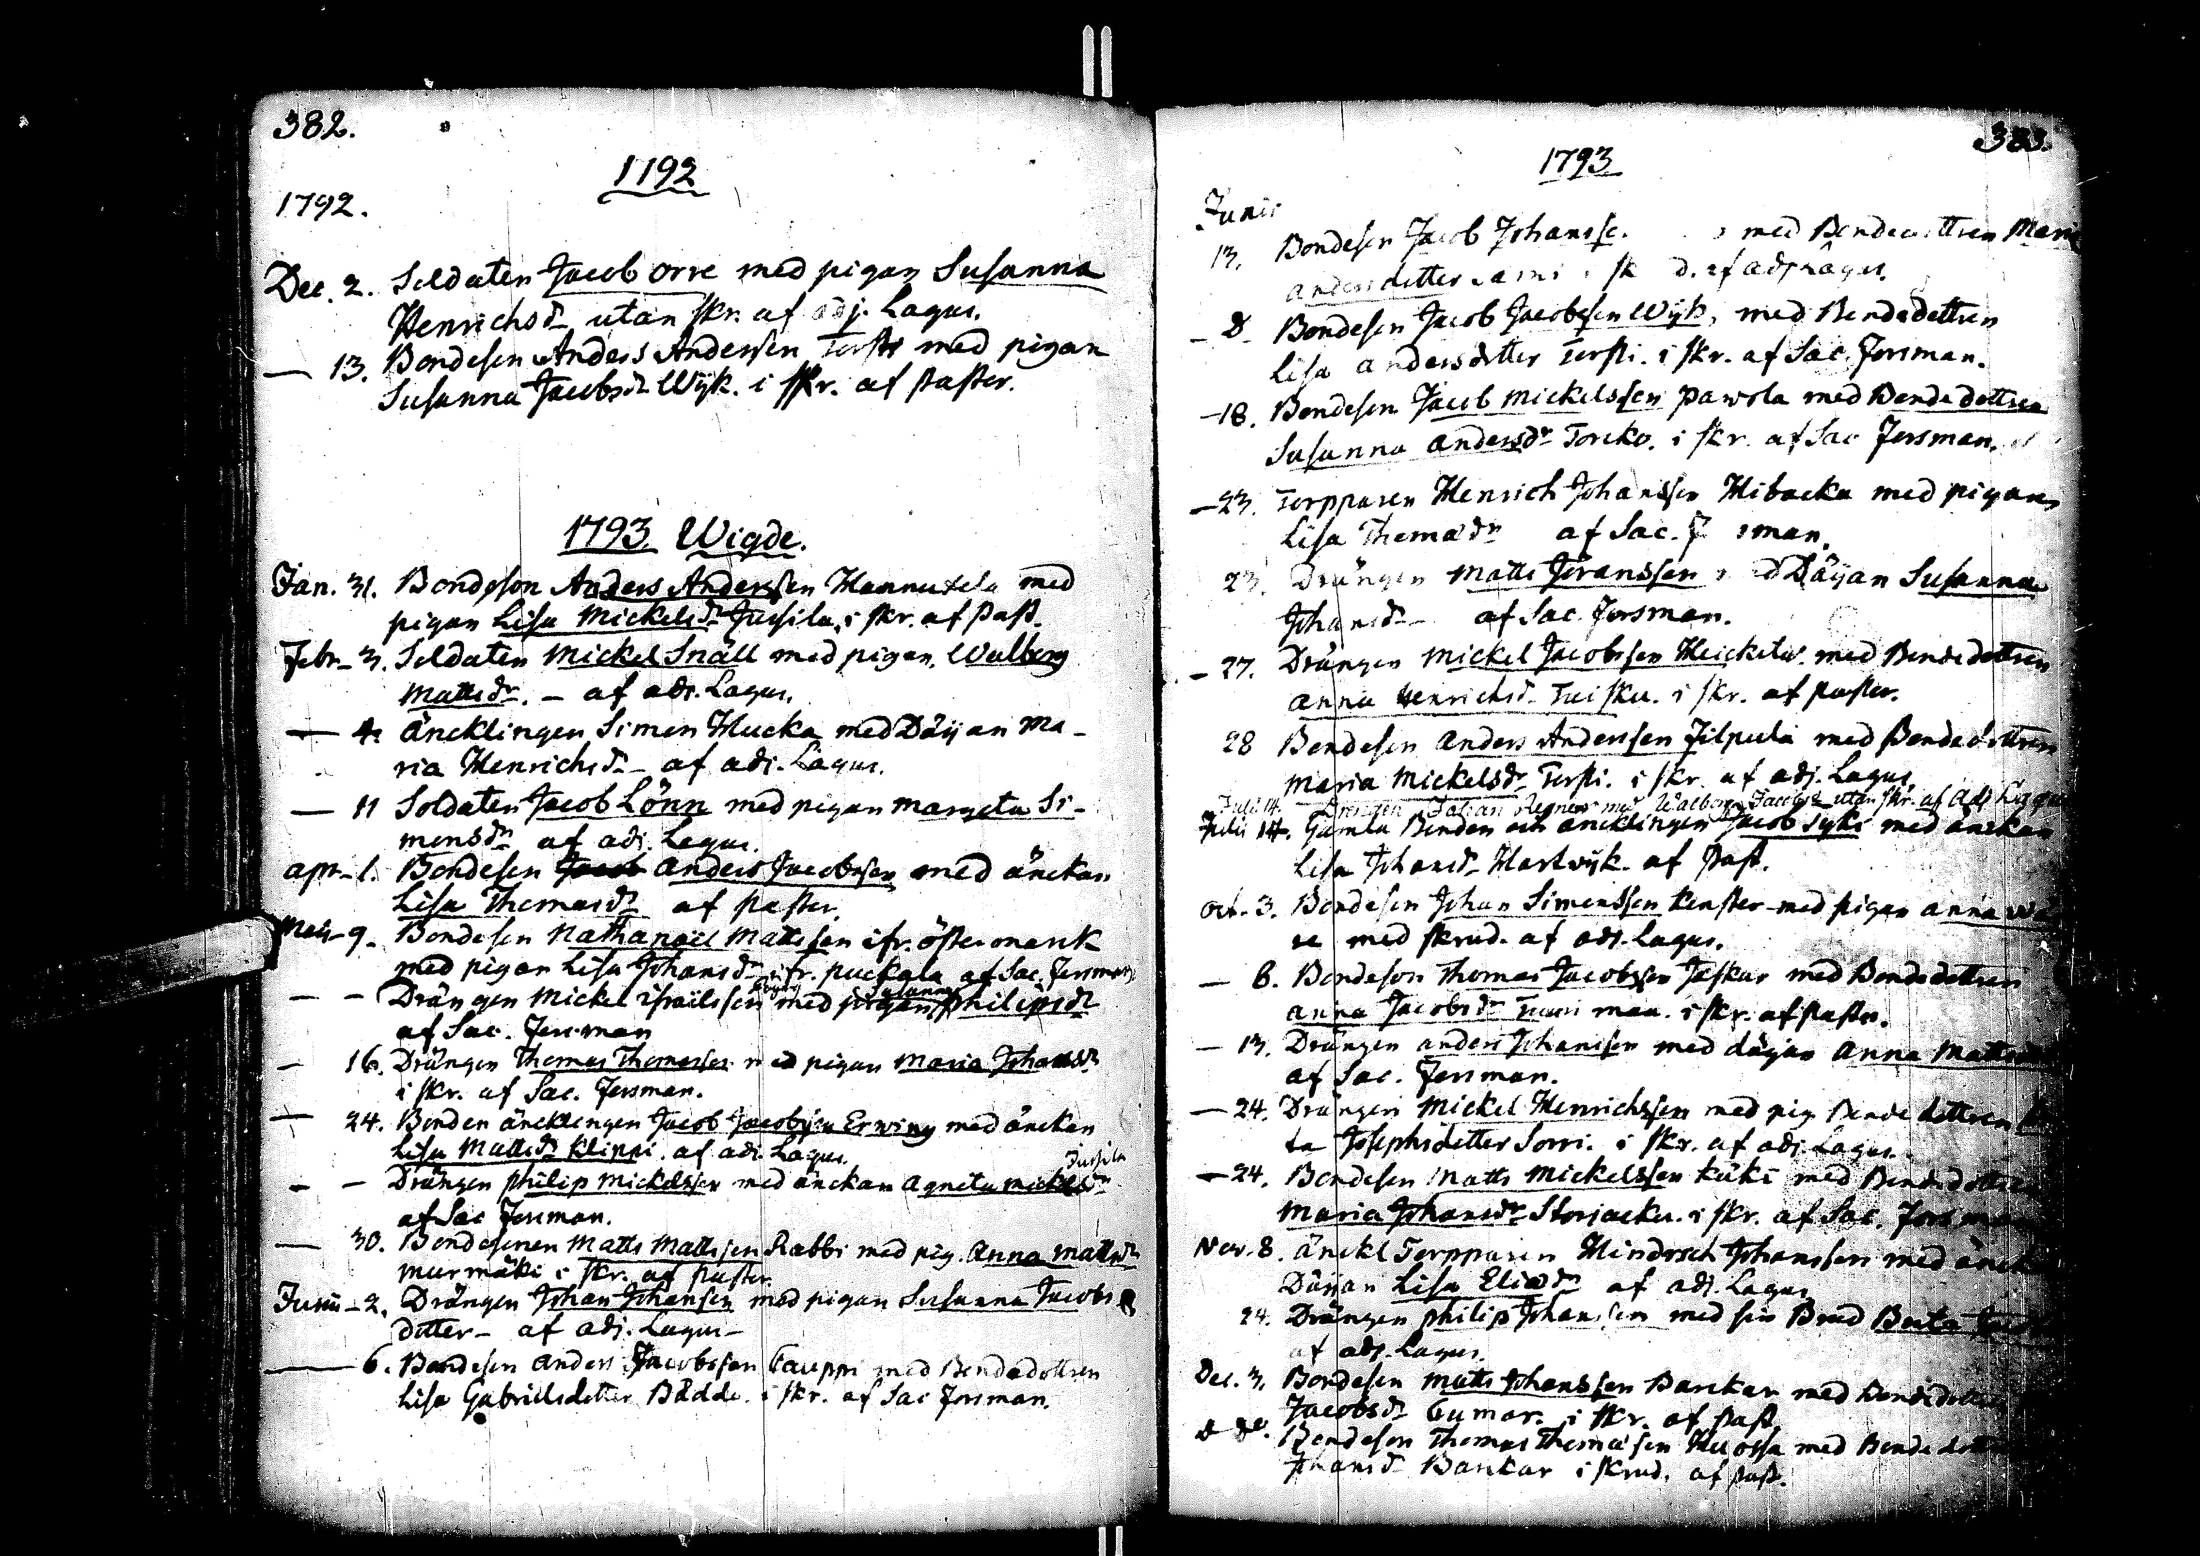 382.
1792
1792.
Dec. 2. Soldaten Jacob Orre med pigan Susanna
Henrichsdr utan skr. af adj. Lagus.
— 13. Bondeson Anders Andersson Torsti med pigan
Susanna Jacobsdr Wijk. i skr. af Pastor.
1793. Wigde.
Jan. 31. Bondeson Anders Andersson Hannutela med
pigan Lisa Mickelsdr Jussila, i skr. af Past.
Febr. 3. Soldaten Mickel Snäll med pigan Walborg
Mattsdr. – af adj. Lagus.
— 4. Äncklingen Simon Hucka med Däijan Ma-
ria Henrichsdr – af adj. Lagus.
— 11 Soldaten Jacob Lönn med pigan Margeta Si-
monsdr af adj. Lagus.
Apr. 1. Bondeson Jacob Anders Jacobsson med änckan
Lisa Thomasdr af Pastor.
Maij 9. Bondeson Nathanaël Mattsson ifr. Östermark
med pigan Lisa Johansdr ifr. Puckala af Sac. Forsman.
– – Drängen Mickel Israilsson med pigan Susanna Philipsdr
af Sac. Forsman
— 16. Drängen Thomas Thomasson med pigan Maria Johansdr
i skr. af Sac. Forsman.
— 24. Bonden äncklingen Jacob Jacobsson Erwing med änckan
Lisa Mattsdr Klippi. af adj. Lagus.
Jussila
– – Drängen Philip Mickelsson med änckan Agneta Mickelsdr
af Sac Forsman.
— 30. Bondesonen Matts Mattsson Rabbi med pig. Anna Mattsdr
Murmäki i skr. af Pastor.
Junii 2. Drängen Johan Johansson med pigan Susanna Jacobs
dotter – af adj. Lagus –
— 6. Bondeson Anders Jacobsson Cauppi med Bondedottren
Lisa Gabrielsdotter Bådde. i skr. af Sac Forsman.
383.
1793
Junii
13. Bondeson Jacob med Bondedottren Maria
Andersdotter af adj. Lagus.
– D. Bondeson Jacob Jacobsson Wijk, med Bondedottren
Lisa Andersdotter Torsti. i skr. af Sac. Forsman.
– 18. Bondeson Jacob Mickelsson Pawola med Bondedottren
Susanna Andersdr Torcko. i skr. af Sac Forsman.
– 23. Torpparen Henrich Johansson Hibacka med pigan
Lisa Thomasdr af Sac. Forsman.
23. Drängen Matts Göransson med Däijan Susanna
Johansdr – af Sac. Forsman.
– 27. Drängen Mickel Jacobsson Heickilä med Bondedottren
Anna Henrichsdr Tuisku. i skr. af Pastor.
28 Bondeson Anders Andersson Filpula med Bondedottren
Maria Mickelsdr Torsti. i skr. af adj. Lagus.
Julii 14. Drengen Johan Regner med Walborg Jacobsdr utan skr. af Adj Lagus
Julii 14. Gamla Bonden och äncklingen Jacob Syki med änckan
Lisa Johansdr Hartwijk. af Past.
Oct. 3. Bondeson Johan Simonsson Kenster med pigan Anna
med skrud. af adj. Lagus.
— 6. Bondeson Thomas Jacobsson Jaskar med Bondedottren
Anna Jacobsdr i skr. af Pastor.
— 13. Drängen Anders Johansson med däijan Anna Matts
af Sac. Forsman.
— 24. Drängen Mickel Henrichsson med pig Bondedottren
ta Josephsdotter Sorri. i skr. af adj. Lagus.
— 24. Bondeson Matts Mickelsson Käki med Bondedottren
Maria Johansdr Storjacku. i skr. af Sac. Forsman
Nov. 8. änckl Torpparen Hindrich Johansson med änck
Däijan Lisa Eliædr af adj. Lagus
24. Drängen Philip Johansson med sin Brud Beata
af adj. Lagus.
Dec. 3. Bondeson Matts Johansson Backar med Bondedottren
Jacobsdr Gumar. i skr. af Past.
D D. Bondeson Thomas Thomasson Huossa med Bondedottren
Johansdr Backar i skrud. af Past.